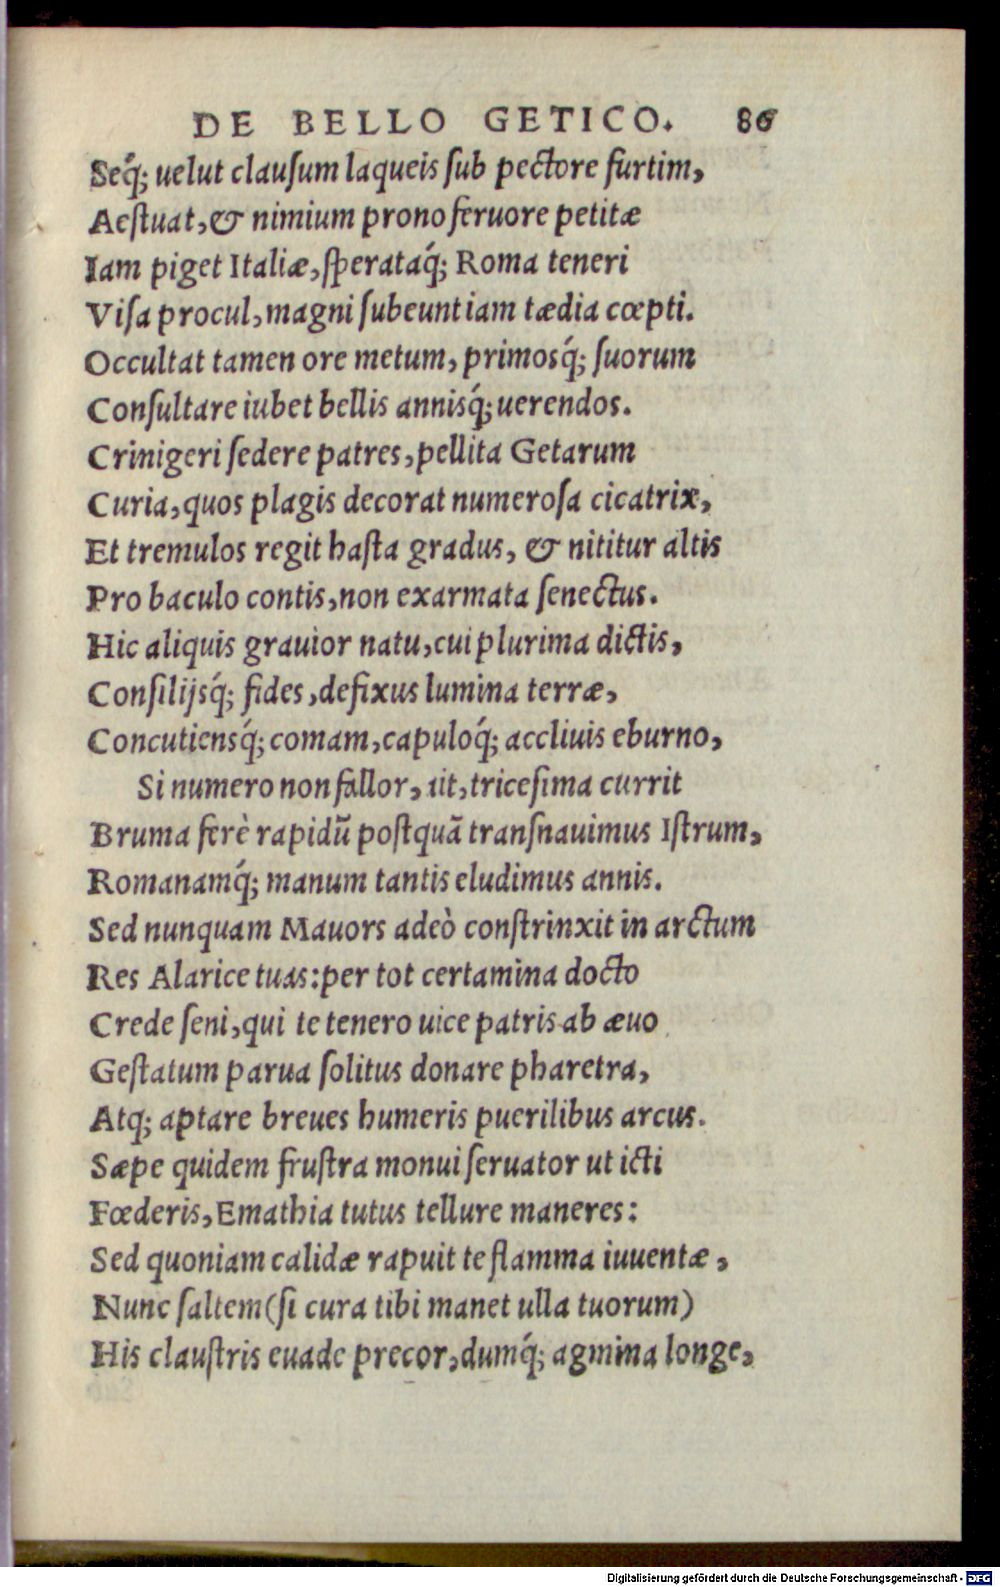 DE BELLO GETICO. 86
Seq́; uelut clauſum laqueis ſub pectore furtim,
Aeſtuat, & nimium prono feruore petitæ
Iam piget Italiæ, ſperataq́; Roma teneri
Viſa procul, magni ſubeunt iam tædia cœpti.
Occultat tamen ore metum, primosq́; ſuorum
Conſultare iubet bellis annisq́; uerendos.
Crinigeri ſedere patres, pellita Getarum
Curia, quos plagis decorat numeroſa cicatrix,
Et tremulos regit haſta gradus, & nititur altis
Pro baculo contis, non exarmata ſenectus.
Hic aliquis grauior natu, cui plurima dictis,
Conſilijsq́; fides, defixus lumina terræ,
Concutiensq́; comam, capuloq́; accliuis eburno,
Si numero non fallor, ait, triceſima currit
Bruma ferè rapidũ poſtquã tranſnauimus Iſtrum,
Romanamq́; manum tantis eludimus annis.
Sed nunquam Mauors adeò conſtrinxit in arctum
Res Alarice tuas: per tot certamina docto
Crede ſeni, qui te tenero uice patris ab æuo
Geſtatum parua ſolitus donare pharetra,
Atq; aptare breues humeris puerilibus arcus.
Sæpe quidem fruſtra monui ſeruator ut icti
Fœderis, Emathia tutus tellure maneres:
Sed quoniam calidæ rapuit te flamma iuuentæ,
Nunc ſaltem (ſi cura tibi manet ulla tuorum)
His clauſtris euade precor, dumq́; agmina longe,
Digitalisierung gefördert durch die Deutsche Forschungsgemeinschaft - DFG